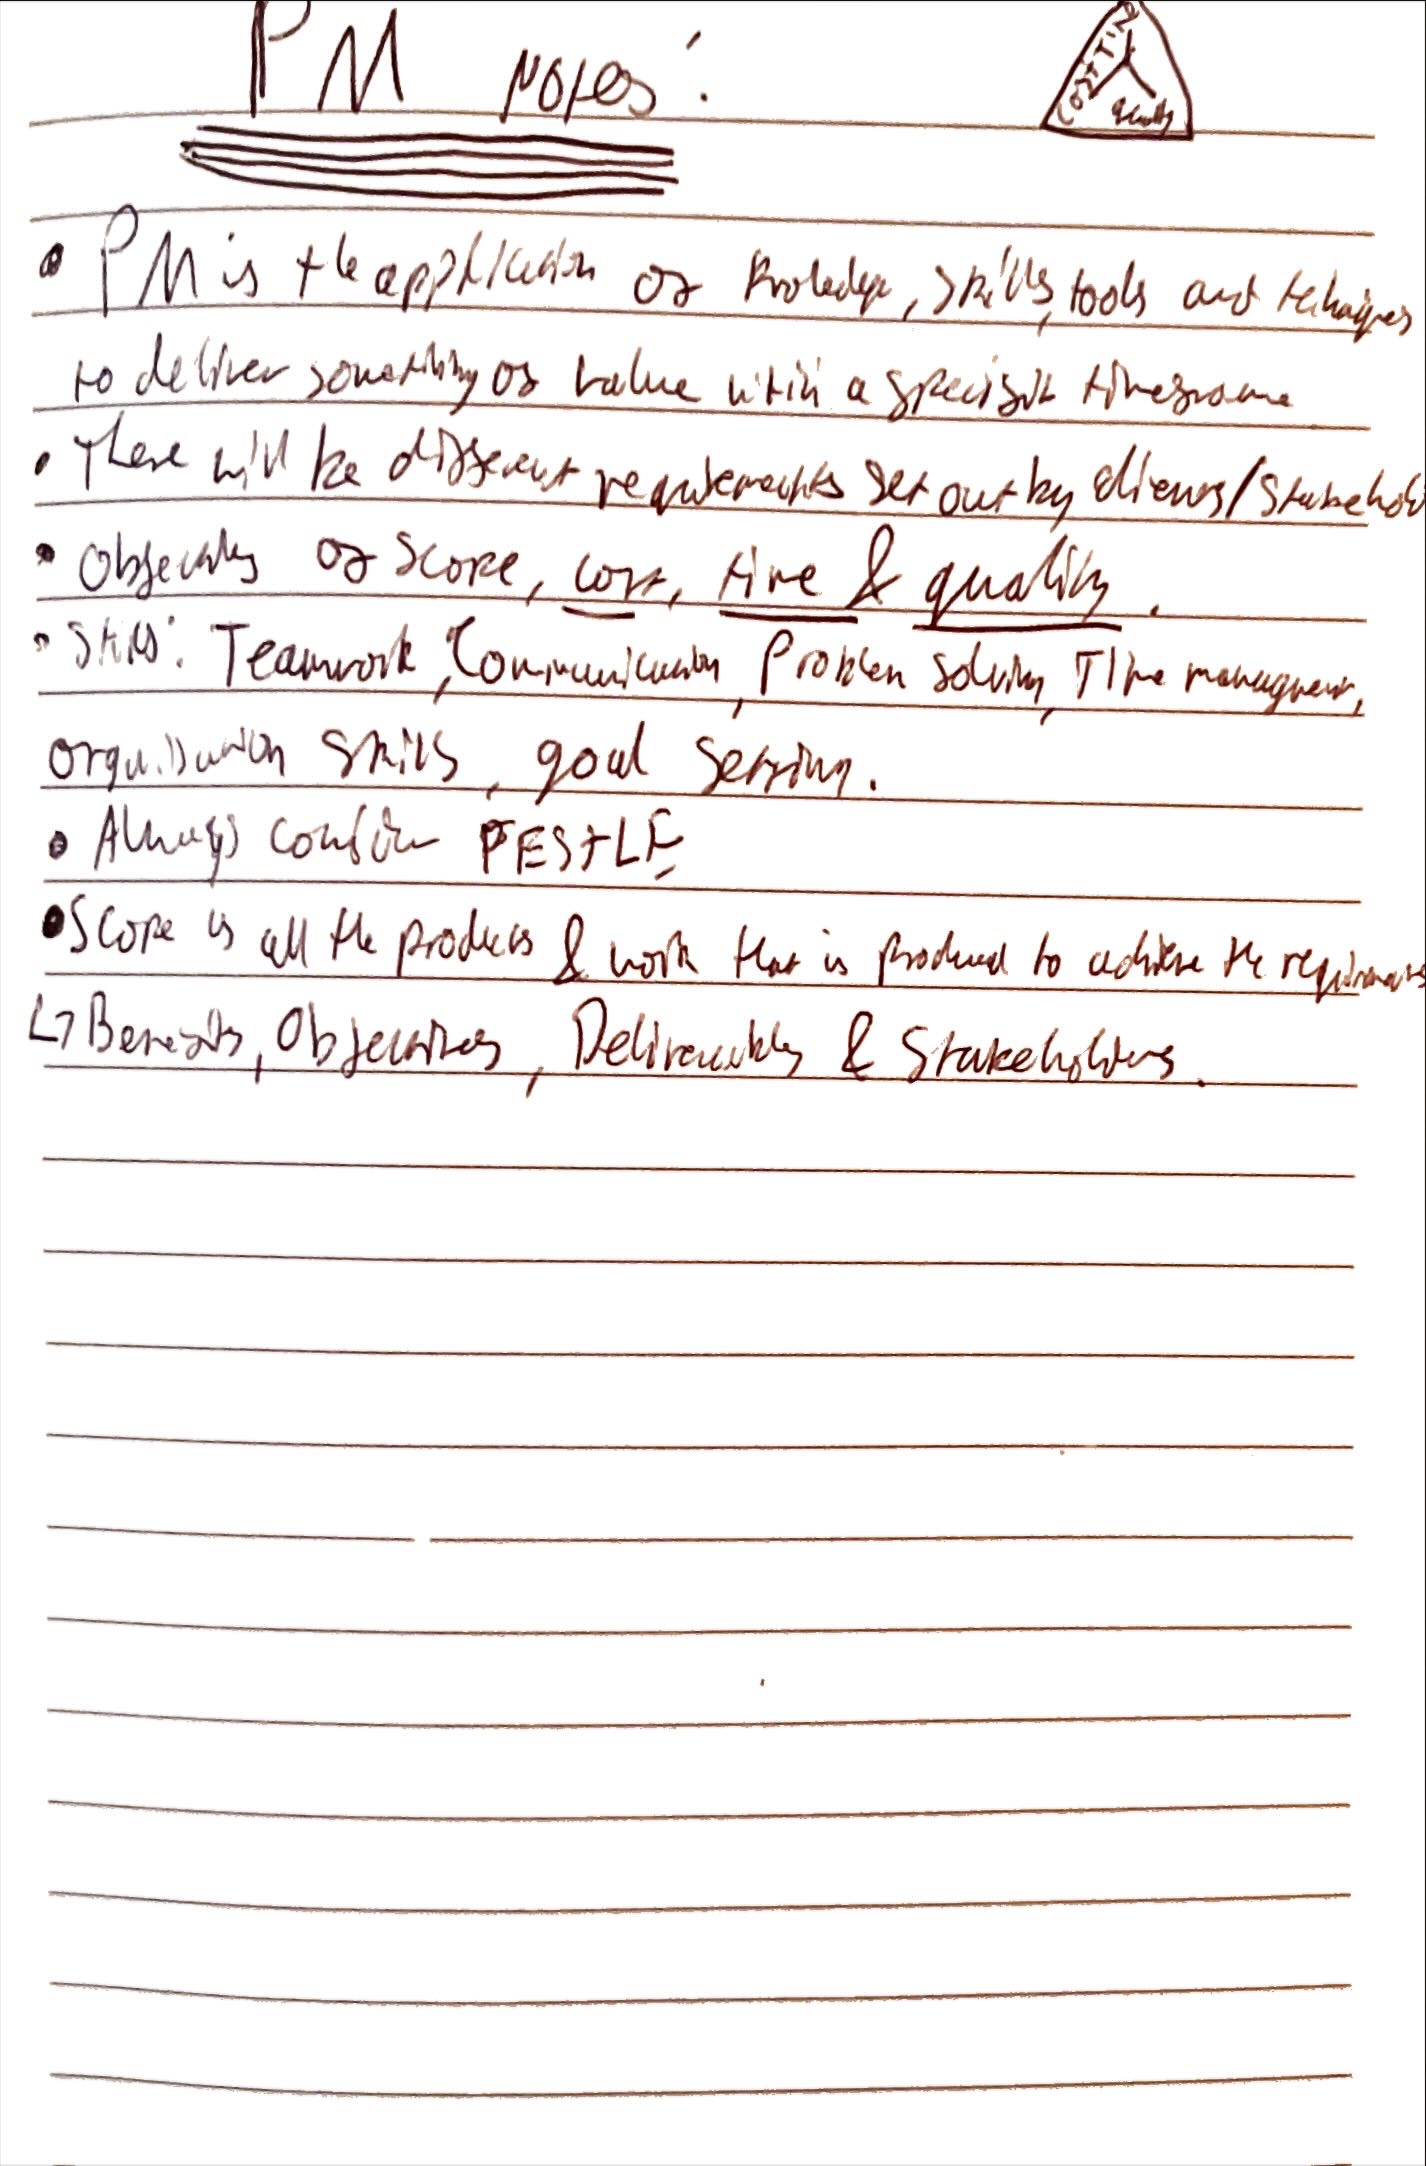 PM notes:
Cost Time
quality
• PM is the application of knowledge, skills, tools and techniques
to deliver something of value within a specific timeframe
• There will be different requirements set out by clients/stakehold
• Objectives of scope, cost, time & quality.
• Skills: Teamwork, Communication, Problem solving, Time management,
organisation skills, goal setting.
• Always consider PESTLE
• Scope is all the products & work that is produced to achieve the requirements
↳ Benefits, Objectives, Deliverables & Stakeholders.